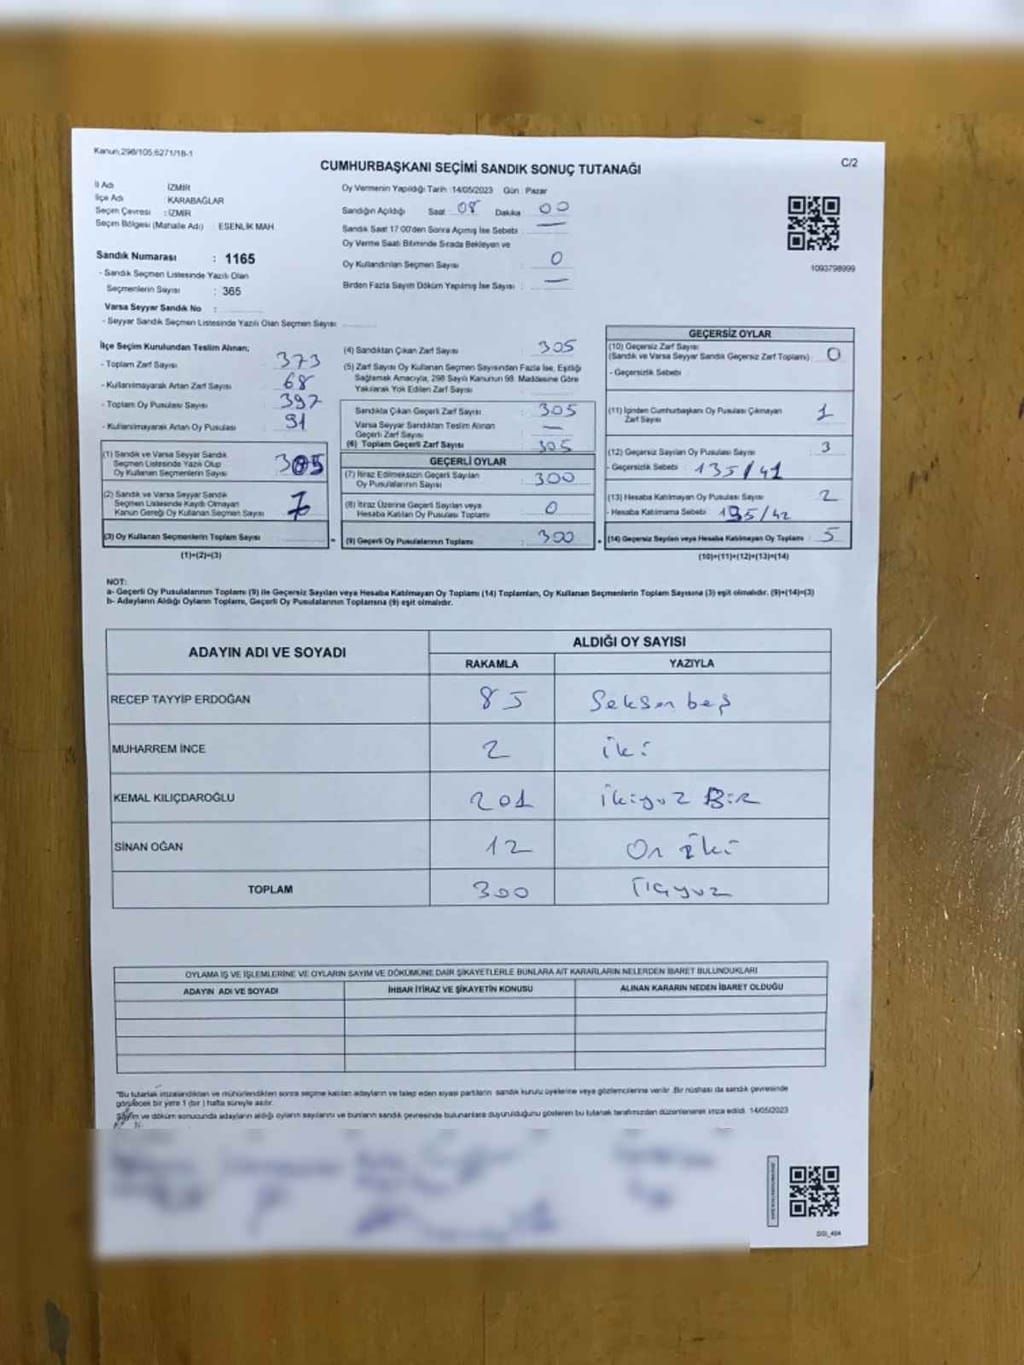 Kanun,298/105,6271/18-1
CUMHURBAŞKANI SEÇİMİ SANDIK SONUÇ TUTANAĞI
C/2
İl Adı İZMİR
İlçe Adı : KARABAĞLAR
Seçim Çevresi : İZMİR
Seçim Bölgesi (Mahalle Adı) : ESENLİK MAH.
Sandık Numarası : 1165
- Sandık Seçmen Listesinde Yazılı Olan
Seçmenlerin Sayısı : 365
Varsa Seyyar Sandık No :
- Seyyar Sandık Seçmen Listesinde Yazılı Olan Seçmen Sayısı
Oy Vermenin Yapıldığı Tarih :14/05/2023 Gün : Pazar
Sandığın Açıldığı Saat 08 Dakika 00
Sandık Saat 17:00'den Sonra Açımış İse Sebebi : —
Oy Verme Saati Bitiminde Sırada Bekleyen ve
Oy Kullandırılan Seçmen Sayısı : 0
Birden Fazla Sayım Döküm Yapılmış İse Sayısı : —
1093798999
İlçe Seçim Kurulundan Teslim Alınan;
- Toplam Zarf Sayısı 373
- Kullanılmayarak Artan Zarf Sayısı 68
- Toplam Oy Pusulası Sayısı 397
- Kullanılmayarak Artan Oy Pusulası 91
(1) Sandık ve Varsa Seyyar Sandık
Seçmen Listesinde Yazılı Olup
Oy Kullanan Seçmenlerin Sayısı
(2) Sandık ve Varsa Seyyar Sandık
Seçmen Listesinde Kaydı Olmayan
Kanun Gereği Oy Kullanan Seçmen Sayısı
(3) Oy Kullanan Seçmenlerin Toplam Sayısı
(1)+(2)=(3)
(4) Sandıktan Çıkan Zarf Sayısı : 305
(5) Zarf Sayısı Oy Kullanan Seçmen Sayısından Fazla İse, Eşitliği
Sağlamak Amacıyla, 298 Sayılı Kanunun 98. Maddesine Göre
Yakılarak Yok Edilen Zarf Sayısı
Sandıkta Çıkan Geçerli Zarf Sayısı : 305
Varsa Seyyar Sandıktan Teslim Alınan
Geçerli Zarf Sayısı : —
(6) Toplam Geçerli Zarf Sayısı : 305
GEÇERLİ OYLAR
(7) İtiraz Edilmeksizin Geçerli Sayılan
Oy Pusulalarının Sayısı : 300
(8) İtiraz Üzerine Geçerli Sayılan veya
Hesaba Katılan Oy Pusulası Toplamı : 0
(9) Geçerli Oy Pusulalarının Toplamı : 300
GEÇERSİZ OYLAR
(10) Geçersiz Zarf Sayısı
(Sandık ve Varsa Seyyar Sandık Geçersiz Zarf Toplamı) : 0
- Geçersizlik Sebebi :
(11) İçinden Cumhurbaşkanı Oy Pusulası Çıkmayan
Zarf Sayısı 1
(12) Geçersiz Sayılan Oy Pusulası Sayısı 3
- Geçersizlik Sebebi : 135/41
(13) Hesaba Katılmayan Oy Pusulası Sayısı 2
- Hesaba Katılmama Sebebi : 135/42
(14) Geçersiz Sayılan veya Hesaba Katılmayan Oy Toplamı : 5
(10)+(11)+(12)+(13)=(14)
NOT:
a- Geçerli Oy Pusulalarının Toplamı (9) ile Geçersiz Sayılan veya Hesaba Katılmayan Oy Toplamı (14) Toplamları, Oy Kullanan Seçmenlerin Toplam Sayısına (3) eşit olmalıdır. (9)+(14)=(3)
b- Adayların Aldığı Oyların Toplamı, Geçerli Oy Pusulalarının Toplamına (9) eşit olmalıdır.
ADAYIN ADI VE SOYADI
ALDIĞI OY SAYISI
RAKAMLA YAZIYLA
RECEP TAYYİP ERDOĞAN 85 Seksenbeş
MUHARREM İNCE 2 iki
KEMAL KILIÇDAROĞLU 201 ikiyüz BİR
SİNAN OĞAN 12 On iki
TOPLAM 300 Üçyüz
OYLAMA İŞ VE İŞLEMLERİNE VE OYLARIN SAYIM VE DÖKÜMÜNE DAİR ŞİKAYETLERLE BUNLARA AİT KARARLARIN NELERDEN İBARET BULUNDUKLARI
ADAYIN ADI VE SOYADI İHBAR İTİRAZ VE ŞİKAYETİN KONUSU ALINAN KARARIN NEDEN İBARET OLDUĞU
*Bu tutanak imzalandıktan ve mühürlendikten sonra seçime katılan adayların ve talep eden siyasi partilerin sandık kurulu üyelerine veya gözlemcilerine verilir. Bir nüshası da sandık çevresinde
görülecek bir yere 1 (bir ) hafta süreyle asılır.
Sayım ve döküm sonucunda adayların aldığı oyların sayılarını ve bunların sandık çevresinde bulunanlara duyurulduğunu gösteren bu tutanak tarafımızdan düzenlenerek imza edildi. 14/05/2023